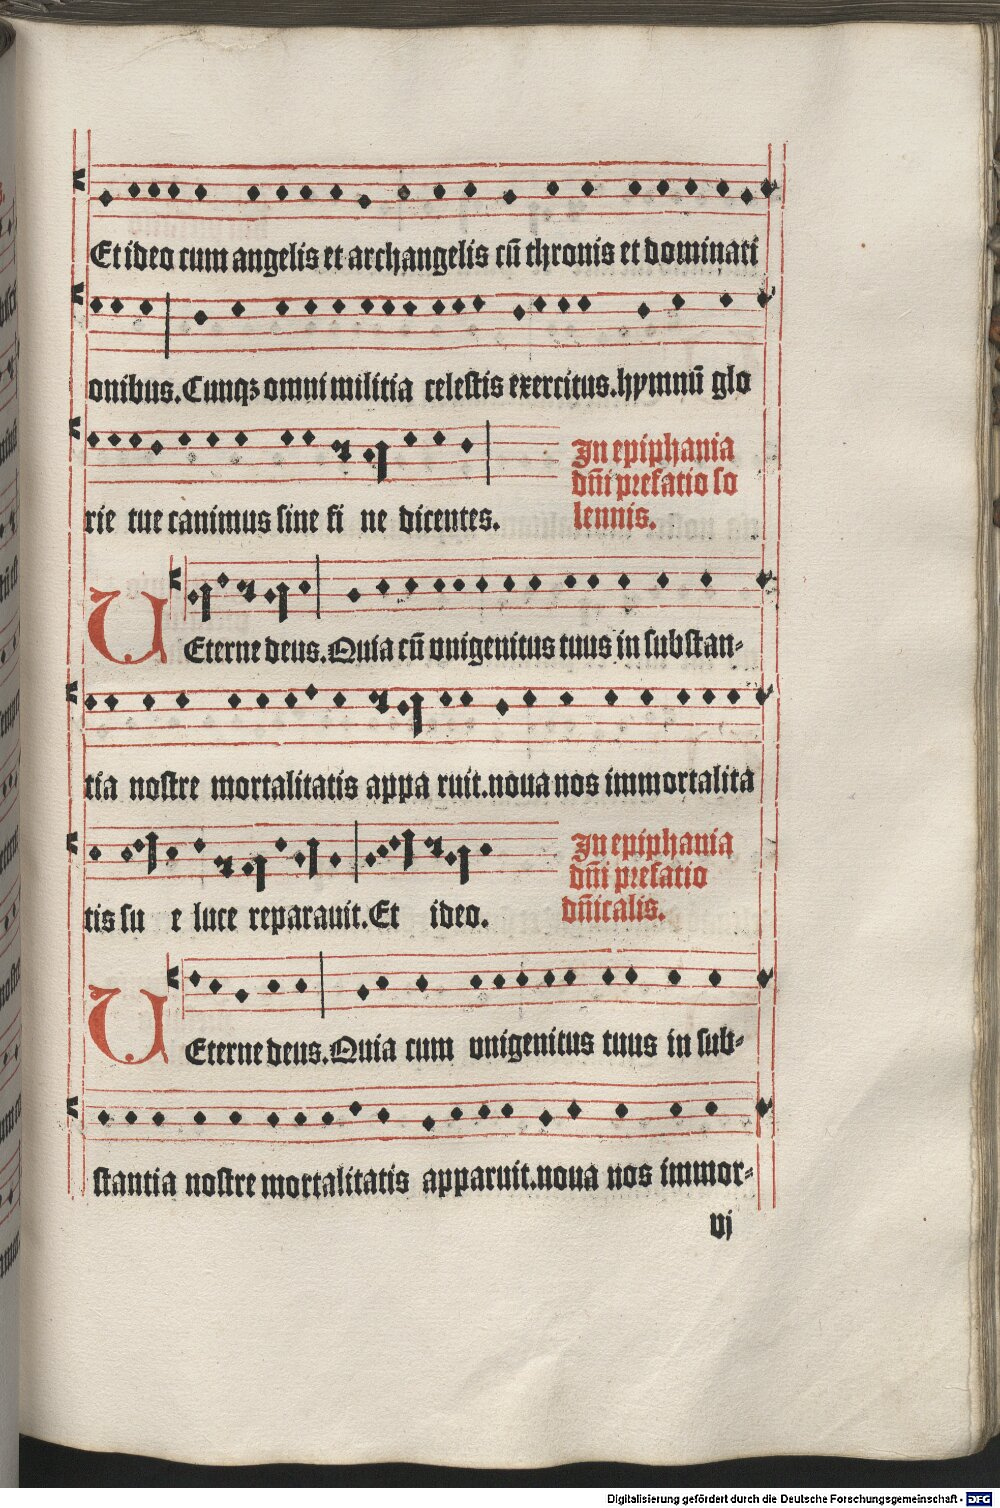 Et ideo cum angelis et archangelis cū thronis et dominati
onibus. Cunqꝫ omni militia celestis exercitus. hymnū glo
rie tue canimus sine fi ne dicentes.
In epiphania
dn̄i prefatio so
lennis.
U Eterne deus. Quia cū vnigenitus tuus in substan⸗
tia nostre mortalitatis appa ruit. noua nos immortalita
tis su e luce reparauit. Et ideo.
In epiphania
dn̄i prefatio
dn̄icalis.
U Eterne deus. Quia cum vnigenitus tuus in sub⸗
stantia nostre mortalitatis apparuit. noua nos immor⸗
vj
Digitalisierung gefördert durch die Deutsche Forschungsgemeinschaft - DFG